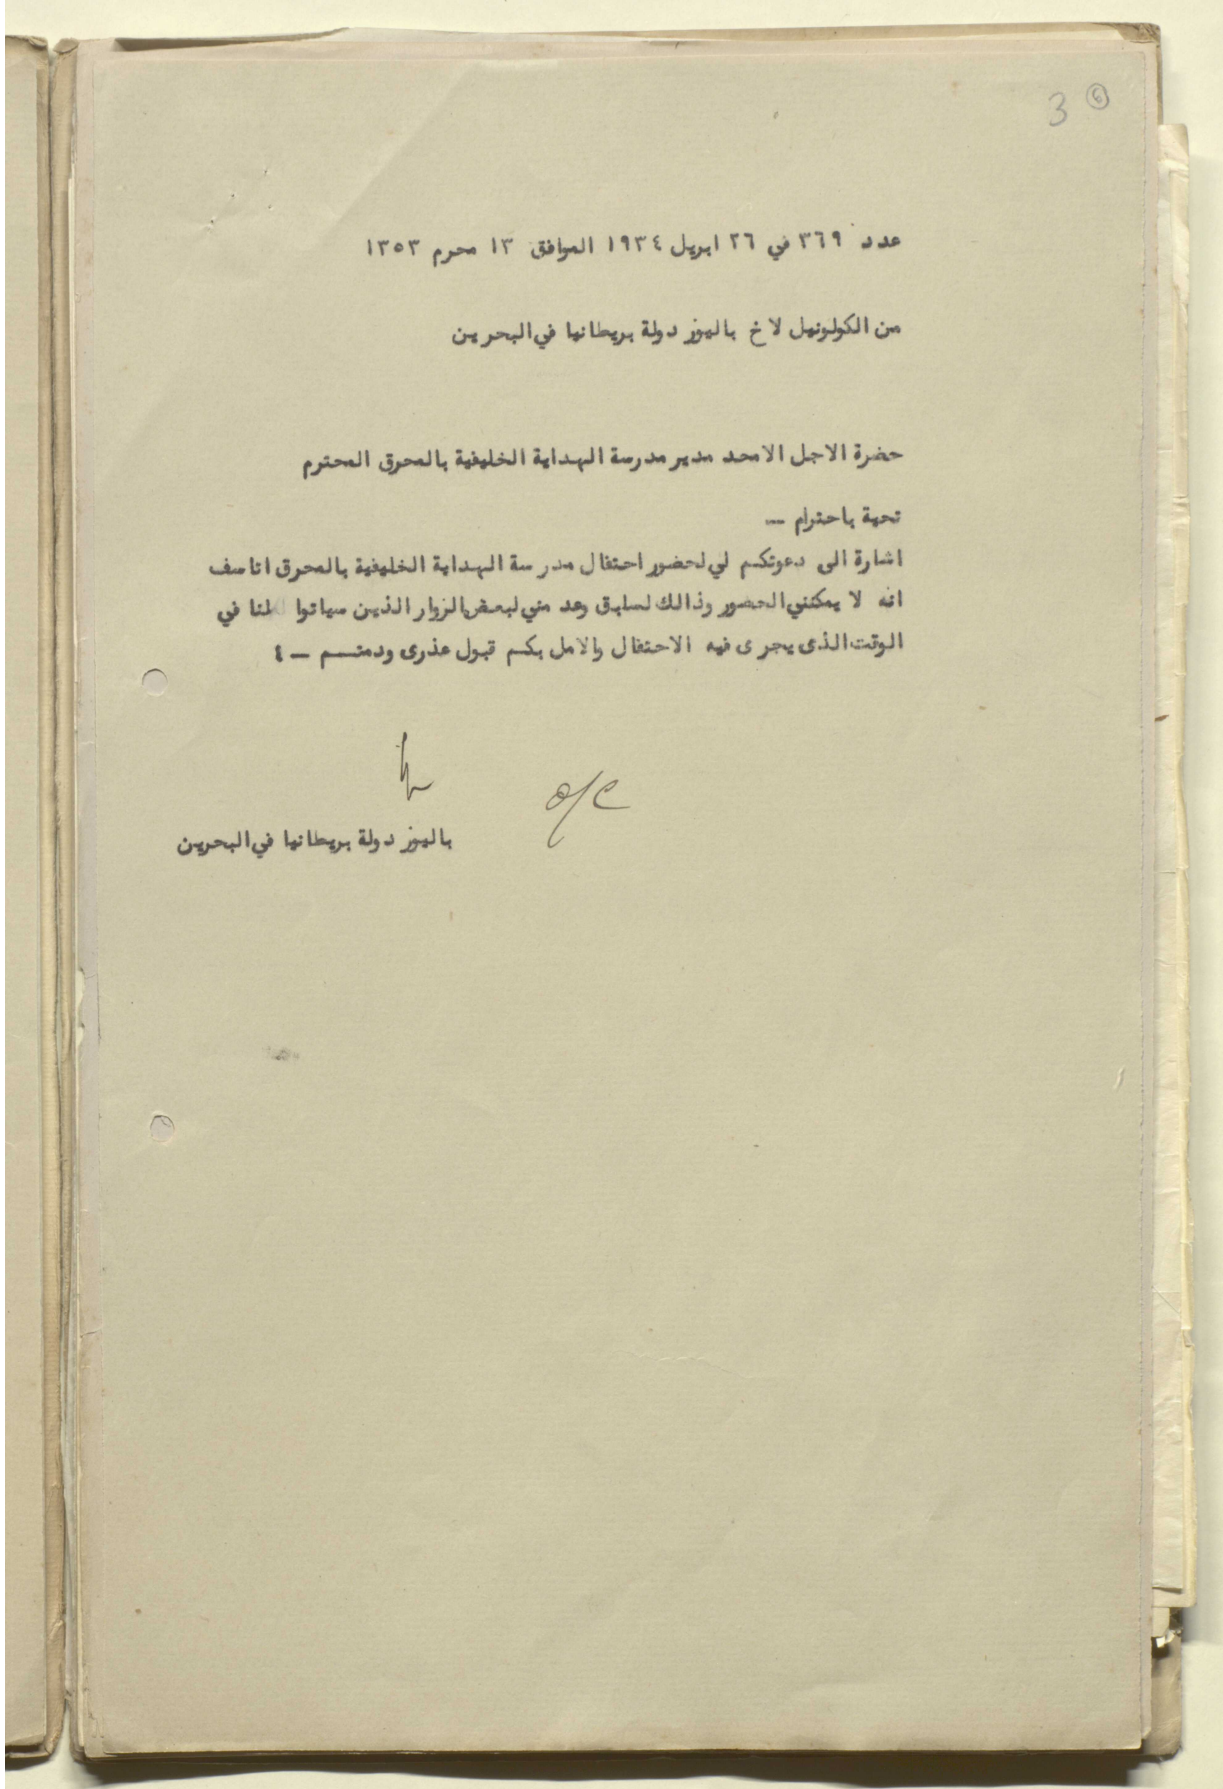 3 ③
عدد ٣٦٩ في ٢٦ ابريل ١٩٣٤ الموافق ١٣ محرم ١٣٥٣
من الكولونيل لاخ باليوز دولة بريطانيا في البحرين
حضرة الاجل الامجد مدير مدرسة الهداية الخليفية بالمحرق المحترم
تحية باحترام —
اشارة الى دعوتكم لي لحضور احتفال مدرسة الهداية الخليفية بالمحرق اتاسف
انه لا يمكنني الحضور وذالك لسابق وعد مني لبعض الزوار الذين سياتوا لنا في
الوقت الذى يجرى فيه الاحتفال والامل بكم قبول عذرى ودمتم — ٤
o/c
باليوز دولة بريطانيا في البحرين